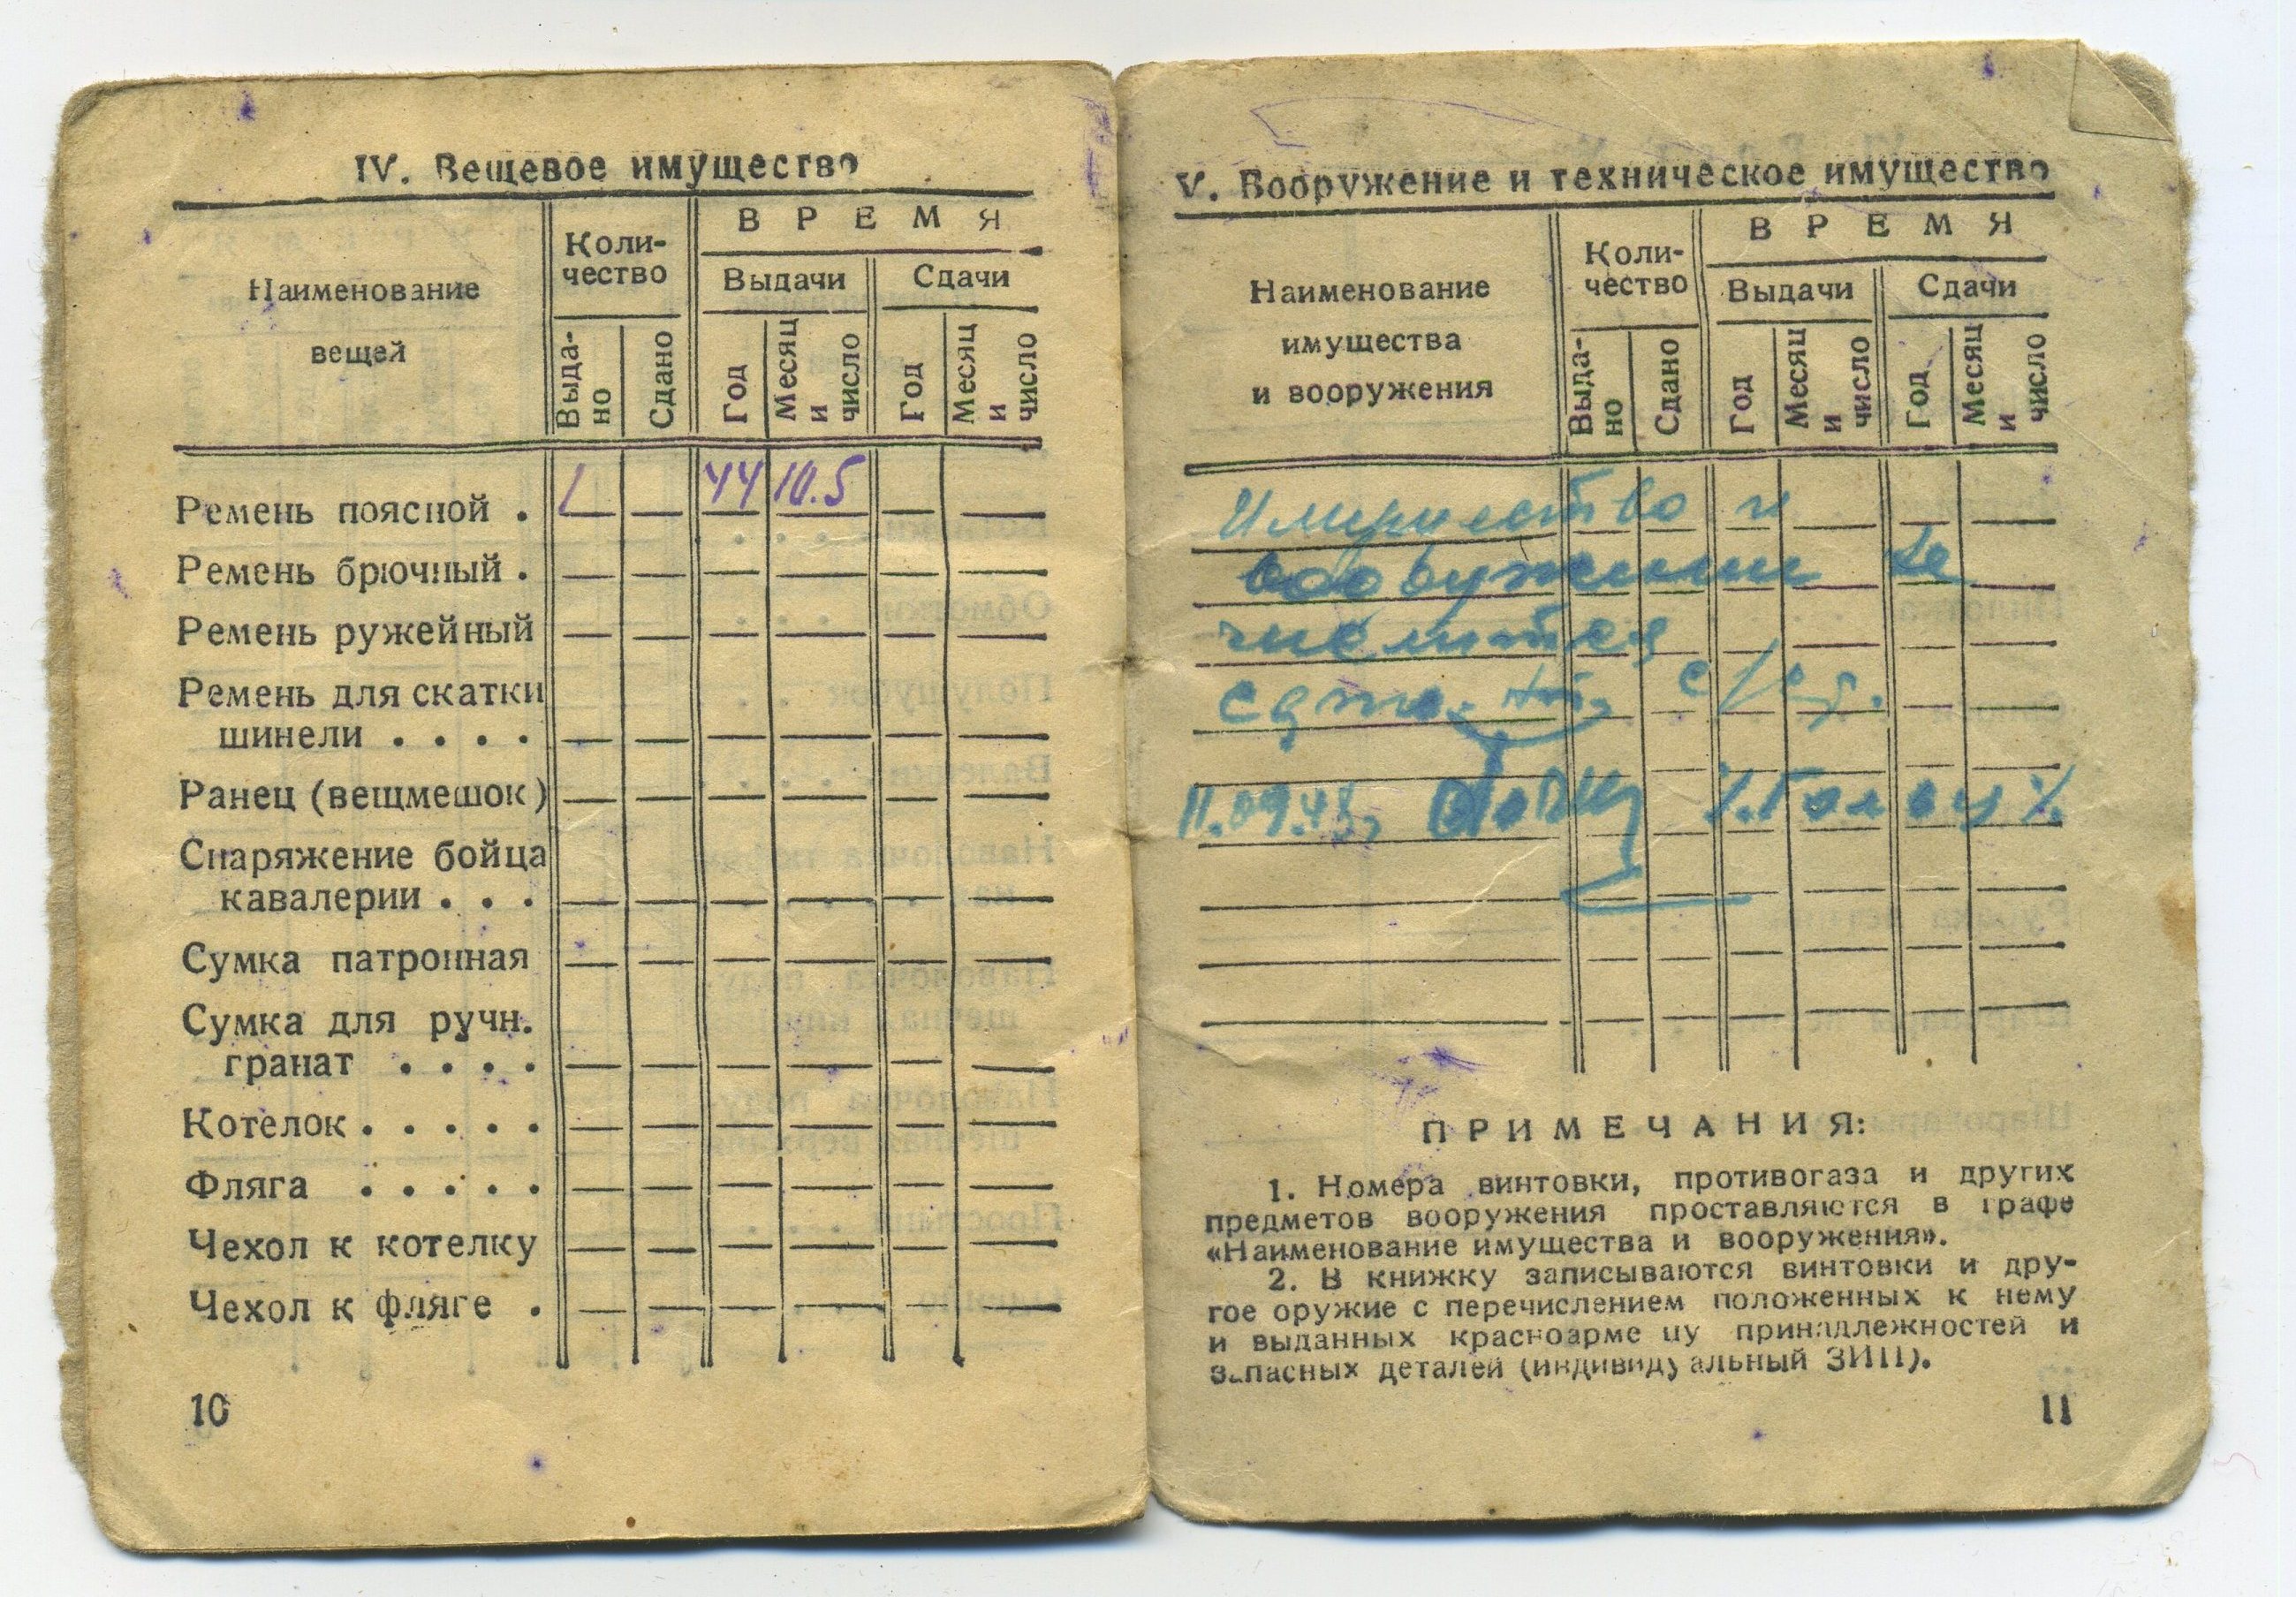 IV. Вещевое имущество
Наименование вещей
Коли-
чество
ВРЕМЯ
Выдачи
Сдачи
Выда-
но
Сдано
Год
Месяц
и
число
Год
Месяц
и
число
Ремень поясной . 1 44 10.5
Ремень брючный .
Ремень ружейный
Ремень для скатки
шинели . . . .
Ранец (вещмешок)
Снаряжение бойца
кавалерии . . .
Сумка патронная
Сумка для ручн.
гранат . . . .
Котелок . . . . .
Фляга . . . . .
Чехол к котелку
Чехол к фляге .
10
V. Вооружение и техническое имущество
Наименование
имущества
и вооружения
Коли-
чество
ВРЕМЯ
Выдачи
Сдачи
Выда-
но
Сдано
Год
Месяц
и
число
Год
Месяц
и
число
Имущество и
вооружение не
числится
11.09.45г
ПРИМЕЧАНИЯ:
1. Номера винтовки, противогаза и других
предметов вооружения проставляются в графе
«Наименование имущества и вооружения».
2. В книжку записываются винтовки и дру-
гое оружие с перечислением положенных к нему
и выданных красноармейцу принадлежностей и
запасных деталей (индивидуальный ЗИП).
11